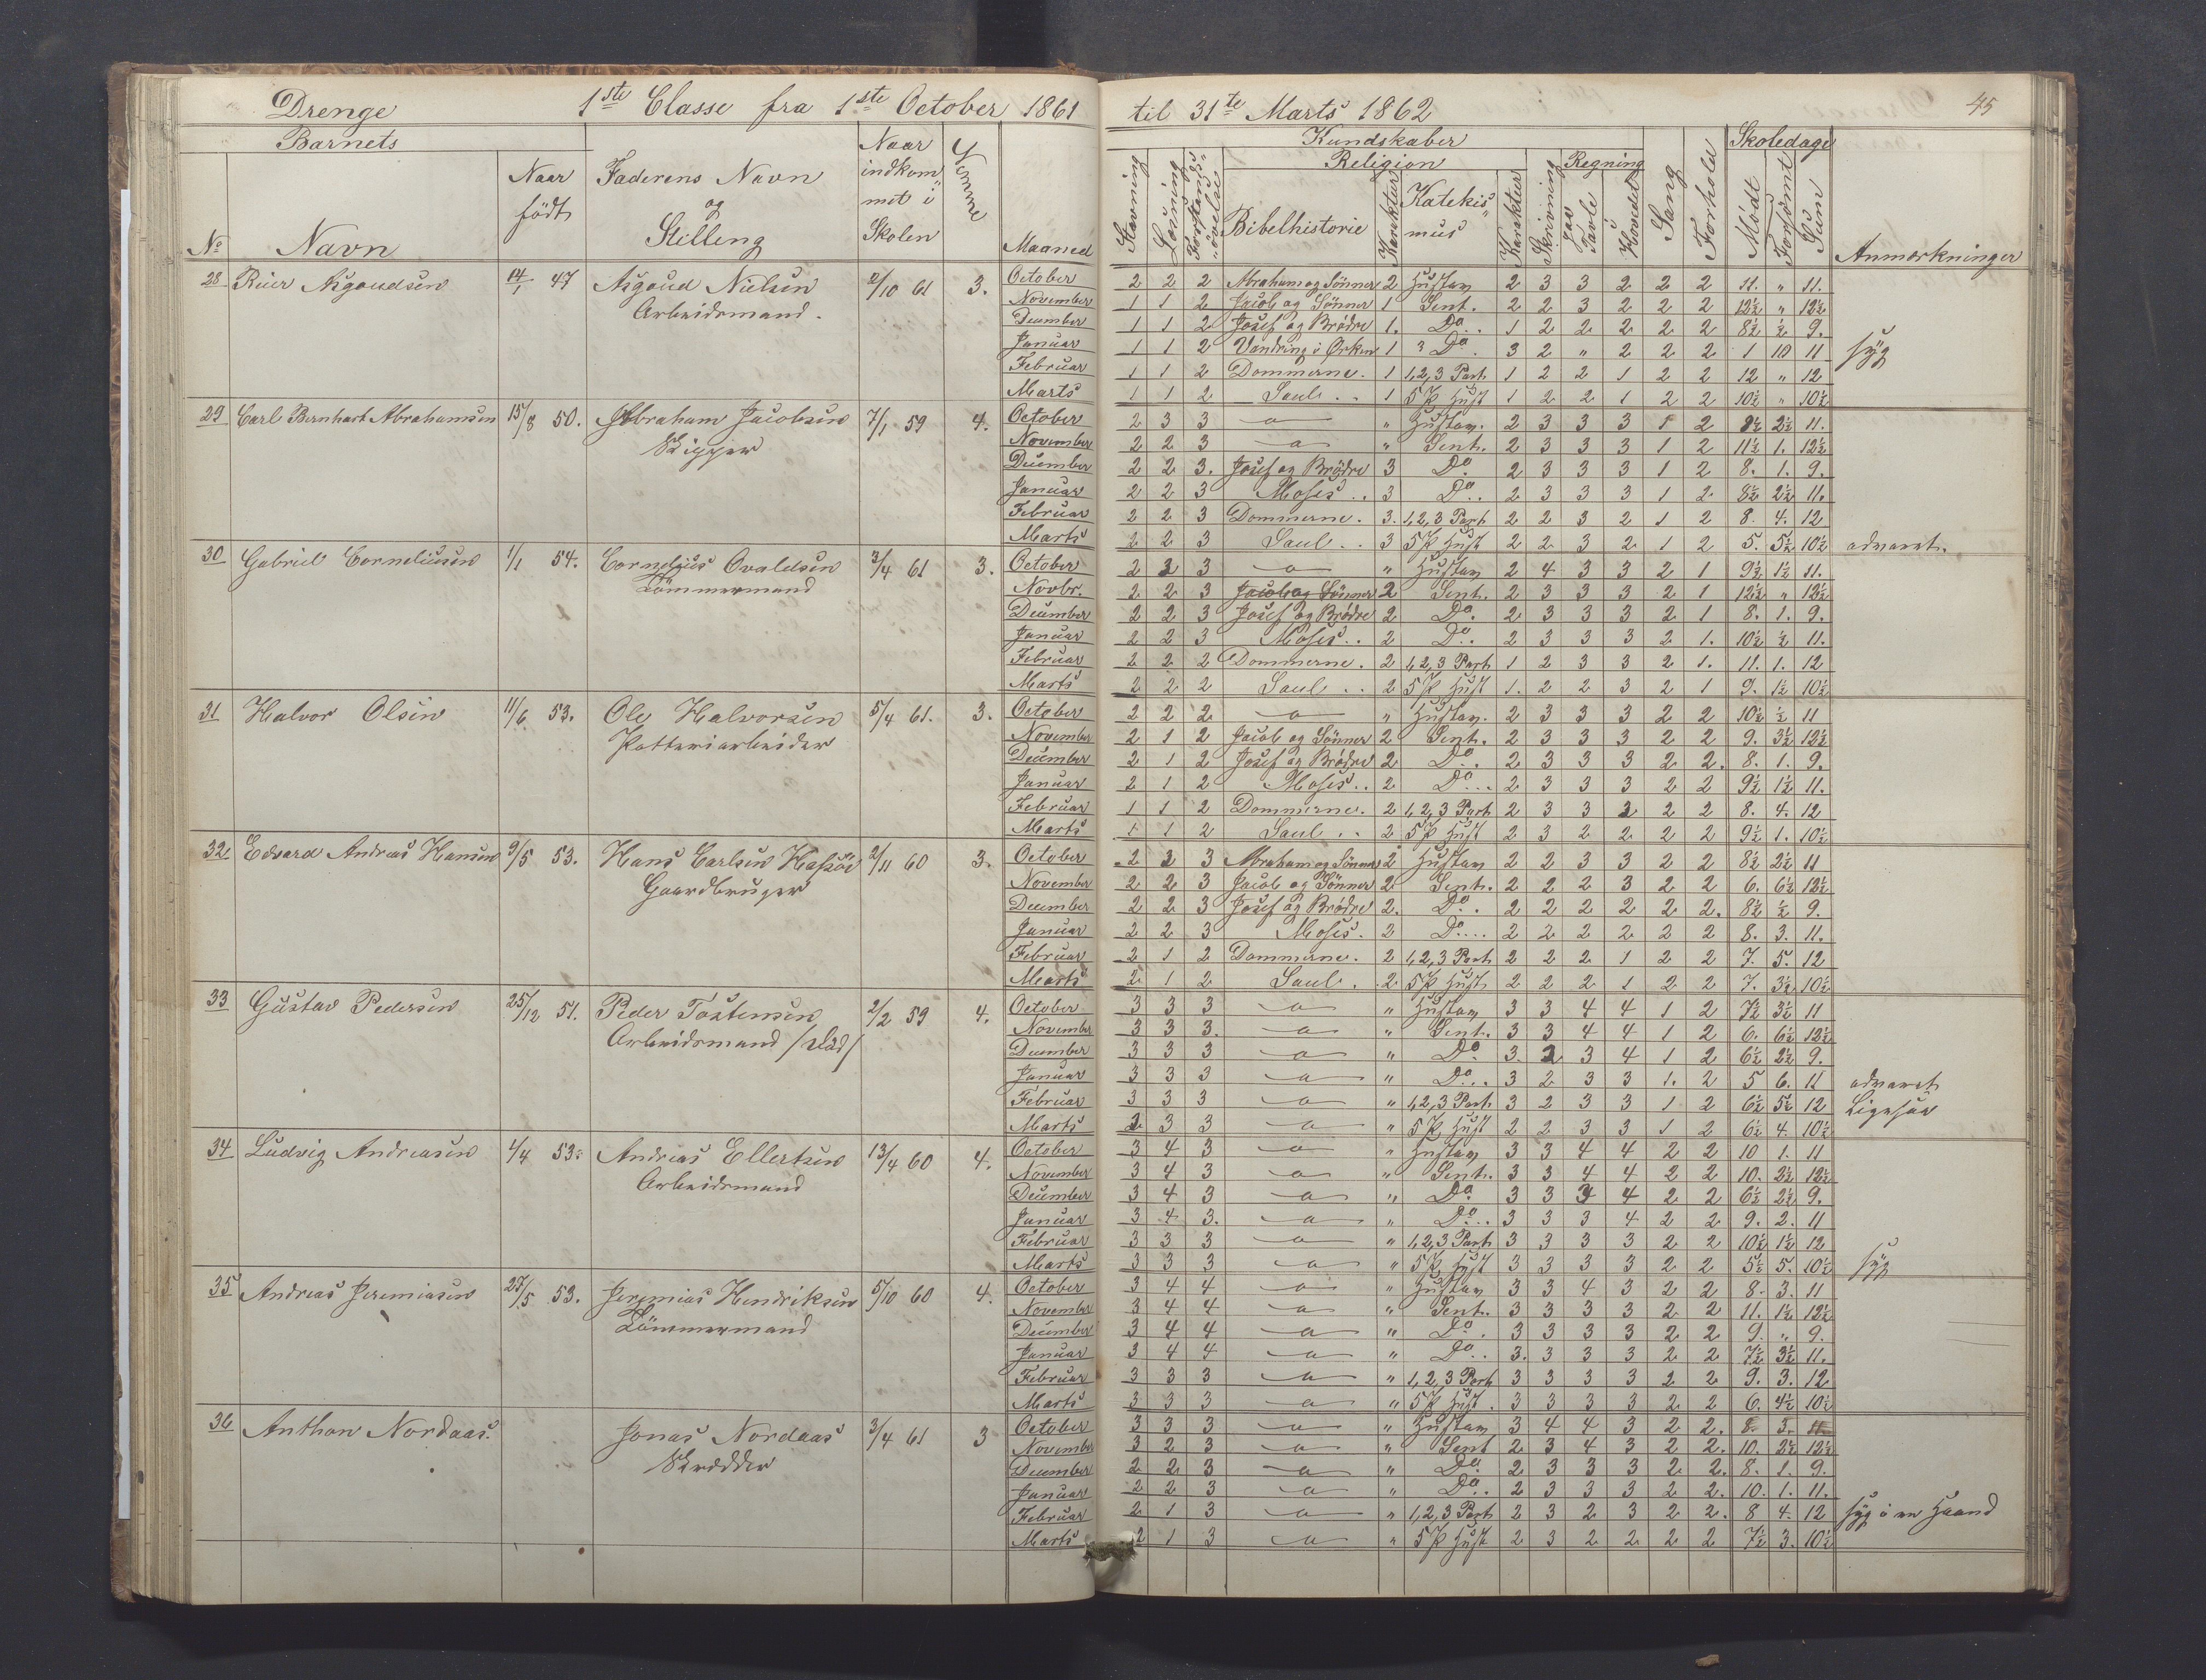 Drenge 1ste Classe fra 1ste October 1861 til 31te Marts 1862 45
Barnets Naar indkommet i Skolen Kundskaber Skoledage
Naar födt Faderens Navn og Stilling Stavning Læsning Religion Skrivning Regning Sang Forhold Mödt Forsömt Sum
No Navn Maaned Bibelhistorie Karakter Katekismus Karakter paa Tavle i Hovedet Anmærkninger
28 14/1 47 Nielsen 2/10 61 3. October 2 2 2 Abraham og Sönner 2 2 3 3 2 2 2 11. " 11.
Arbeidsmand. November 1 1 2 Jacob og Sönner 1 Sent. 2 2 3 2 2 2 12½ " 12½
December 1 1 2 Josef og Brödre 1. Do.. 1 2 2 2 2 2 8½ ½ 9.
Januar 1 1 2 Vandring i Örken 1 3 Do. 3 2 " 2 2 2 1 10 11 syg
Februar 1 1 2 Dommerne. 1 1,2,3 Part 1 2 2 1 2 2 12 " 12
Marts 1 1 2 Saul.. 1 5 P 1 2 2 1 2 2 10½ " 10½
29 Carl Bernhart Abrahamsen 15/8 50. Abraham Jacobsen 7/1 59 4. October 2 3 3 " 2 3 3 3 1 2 2½ 11.
Skipper November 2 2 3 " Sent. 2 3 3 3 1 2 11½ 1. 12½
December 2 2 3. Josef og Brödre 3 Do. 2 3 3 3 1 2 8. 1. 9.
Januar 2 2 3 Moses.. 3 Do.. 2 3 3 3 1 2 8½ 2½ 11.
Februar 2 2 3 Dommerne. 3. 1,2,3 Part 2 2 3 2 1 2 8. 4. 12
Marts 2 2 3 Saul.. 3 5 P 2 2 3 2 1 2 5. 5½ 10½ advaret.
30 Gabriel Corneliusen 1/1 54. Cornelius 3/4 61 3. October 2 3 3 " 2 4 3 3 2 1 9½ 1½ 11.
Tömmermand Novbr. 2 2 3 Jacob og Sönner 2 Sent. 2 3 3 3 2 1 12½ " 12½
December 2 2 3 Josef og Brödre 2 Do. 2 3 3 3 2 1 8. 1. 9.
Januar 2 2 3 Moses.. 2 Do.. 2 3 3 3 2 1. 10½ ½ 11.
Februar 2 2 2 Dommerne. 2 1,2,3 Part 1 2 3 3 2 1. 11. 1. 12
Marts 2 2 2 Saul.. 2 5 P 1. 2 2 3 2 1 9. 1½ 10½
31 Halvor Olsen 11/6 53. Ole Halvorsen 5/4 61. 3. October 2 2 2 " 2 3 3 3 2 2 10½ ½ 11
Potteriarbeider November 2 1 2 Jacob og Sönner 2 Sent. 2 3 3 3 2 2 9. 3½ 12½
December 2 1 2 Josef og Brödre 2 Do.. 2 3 3 3 2 2. 8. 1. 9.
Januar 2 1 2 Moses.. 2 Do... 2 3 3 3 2 2 9½ 1½ 11.
Februar 1 1 2 Dommerne. 2 1,2,3 Part 2 3 3 2 2 8. 4. 12
Marts 1 1 2 Saul.. 2 5 P 2 3 2 2 2 2 9½ 1. 10½
32 Edvard Andreas Hansen 9/5 53. Hans Carlsen 2/11 60 3. October 2 3 3 Abraham og Sönner 2 2 2 3 3 2 2 8½ 2½ 11
Gaardbruger November 2 2 3 Jacob og Sönner 2 Sent. 2 2 2 3 2 2 6. 6½ 12½
December 2 2 3 Josef og Brödre 2. Do.. 2 2 2 2 2 2. 8½ ½ 9.
Januar 2 2 3 Moses. 2 Do.... 2 2 2 2 2 2 8. 3. 11.
Februar 2 1 2 Dommerne. 2 1,2,3 Part 2 2 2 1 2 2 7. 5. 12
Marts 2 1 2 Saul. 2 5 P 2 2 2 1 2 2 7. 3½ 10½
33 Gustav Pedersen 25/12 51. Peder Tostensen 2/2 59 4. October 3 3 3 " 3 3 4 4 1 2 7½ 3½ 11
Arbeidsmand /död/ November 3 3 3. " Sent. 3 3 4 4 1 2 6. 6½ 12½
December 3 3 3 " Do. 3. 2 3 4 1 2 6½ 2½ 9.
Januar 3 3 3 " Do... 3 2 3 3 1. 2 5 6. 11 advaret
Februar 3 3 3 " 1,2,3 Part 3 2 3 3 1 2 6½ 5½ 12
Marts 3 3 " 5 P 2 2 3 3 1 2 6½ 4. 10½
34 Ludvig Andreasen 4/4 53. Andreas Ellertsen 13/4 60 4. October 3 4 3 " 3 3 4 4 2 2 10 1. 11
Arbeidsmand November 3 4 3 " Sent. 3 3 4 4 2 2 10. 2½ 12½
December 3 4 3 " Do. 3 3 4 2 2 6½ 2½ 9.
Januar 3 4 3. " Do... 3 3 3 4 2 2 9. 2. 11
Februar 3 3 3 " 1,2,3 Part 3 3 3 3 2 2 10½ 1½ 12
Marts 3 3 3 " 5 P 3 3 3 3 2 2 5½ 5. 10½ syg
35 Andreas Jeremiasen 27/5 53. Jeremias Hendriksen 5/10 60 4. October 3 4 4 " 3 3 4 3 2 2 8. 3. 11
Tömmermand November 3 4 4 " Sent. 3 3 3 3 2 2 11. 1½ 12½
December 3 4 4 " Do. 3 3 3 3 2 2 9. " 9.
Januar 3 4 4 " Do.. 3. 3 3 3 2 2 7½ 3½ 11.
Februar 3 3 3 " 1,2,3 Part 3 3 3 3 2 2 9. 3. 12
Marts 3 3 3 " 5 P 3 3 3 3 2 2 6. 4½ 10½
36 Anthon Nordaas. Jonas Nordaas 3/4 61 3 October 3 3 3 " 3 4 4 3 2 2. 8. 3. 11
Skrædder November 3 2 3 " Sent 2 3 4 3 2 2. 10. 2½ 12½
December 2 2 3 " Do. 2 3 3 3 2 2. 8. 1. 9.
Januar 2 2 3 " Do.. 2 3 3 3 2 2. 10. 1. 11.
Februar 2 1 3 " 1,2,3 Part 2 3 2 3 2 2. 8 4. 12 syg i en Haand
Marts 2 1 3 " 5 P 2 3 2 2 2 2 7½ 3. 10½